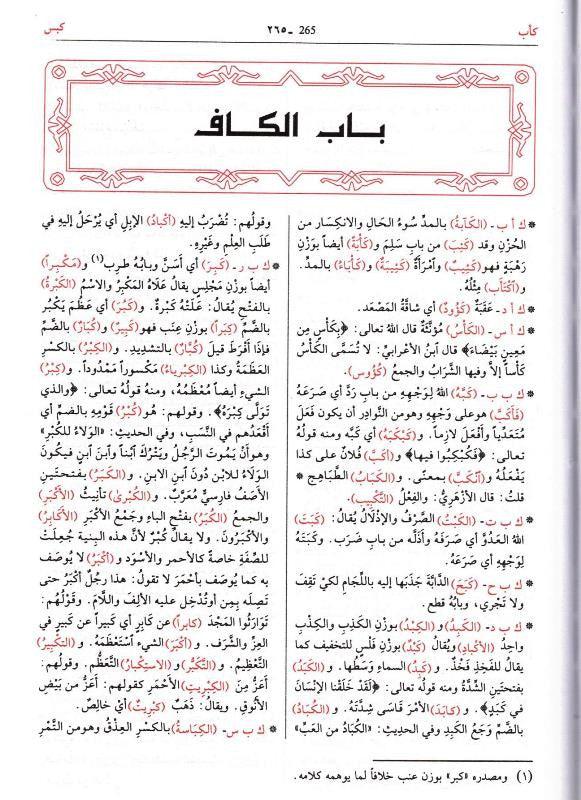 كأب
265 ـ ٢٦٥
كبس
باب الكاف
* ك أ ب ـ (الكَآبَةُ) بالمدِّ سُوءُ الحَالِ والانكِسار من
الحُزْنِ وقد (كَئِبَ) من باب سَلِمَ و(كَأْبَةً) أيضاً بوَزْنِ
رَهْبَةٍ فهو(كَئِيبٌ) وامْرَأَةٌ (كَئِيبَةٌ) و(كَأْبَاءُ) بالمدِّ.
و(اكْتَأَبَ) مِثْلُهُ.
* ك أ د ـ عَقَبَةٌ (كَؤُودٌ) أي شاقَّةُ المَصْعَد.
* ك أ س ـ (الكَأْسُ) مُؤنَّثَةٌ قال اللهُ تعالى: ﴿بِكَأْسٍ مِن
مَعِينٍ بَيْضَاءَ﴾ قال ابنُ الأعرابيِّ: لا تُسَمَّى الكَأْسُ
كَأْساً إلّا وفيها الشَّرابُ والجمعُ (كُؤُوسٌ).
* ك ب ب ـ (كَبَّهُ) اللهُ لِوَجْهِهِ من باب رَدَّ أي صَرَعَهُ
(فَأَكَبَّ) هوعلى وَجْهِهِ وهومن النَّوادِرِ أن يكون فَعَلَ
مُتَعَدِّياً وأفْعَلَ لازِماً. و(كَبْكَبَهُ) أي كَبَّه ومنه قولُهُ
تعالى: ﴿فَكُبْكِبُوا فِيها﴾ و(أكَبَّ) فُلانٌ على كذا
يَفْعَلُهُ و(انْكَبَّ) بمعنًى. و(الكَبَابُ) الطَّباهِج *
قلتُ: قال الأزهَرِيُّ: والفِعْلُ (التَّكْبِيب).
* ك ب ت ـ (الكَبْتُ) الصَّرْفُ والإذْلالُ يُقالُ: (كَبَتَ)
اللهُ العَدُوَّ أي صَرَفَهُ وأذَلَّه من باب ضَرَب. وكَبَتَهُ
لِوَجْهِهِ أي صَرَعَهُ.
* ك ب ح ـ (كَبَحَ) الدَّابَّةَ جَذَبَها إليه باللِّجَامِ لكيْ تَقِفَ
ولا تَجْري، وبابُهُ قطع.
* ك ب د ـ (الكَبِدُ) و(الكِبْدُ) بوزن الكَذِبِ والكِذْبِ
واحِدُ (الأكْبادِ)ويُقالُ (كَبْدٌ) بوزن فَلْسٍ للتَّخفيف كما
يقال للفَخِذِ فَخْذٌ. و(كَبِدُ) السماءِ وَسَطُها. و(الكَبَدُ)
بفتحتين الشِّدَّةُ ومنه قولُهُ تعالى: ﴿لَقَدْ خَلَقْنا الإنْسَانَ
في كَبَدٍ﴾. و(كابَدَ) الأمْرَ قَاسَى شِدَّتَهُ. و(الكُبَادُ)
بالضَّمِّ وَجَعُ الكَبِدِ وفي الحديثِ: «الكُبَادُ من العَبِّ»
وقولُهم: تُضْرَبُ إليه (أكْبَادُ) الإبِلِ أي يُرْحَلُ إليه في
طَلَبِ العِلْمِ وغَيْرِهِ.
* ك ب ر ـ (كَبِرَ) أي أسَنَّ وبابُهُ طَرِب(١) و(مَكْبِراً)
أيضاً بوَزْنِ مَجْلِسٍ يقالُ عَلاهُ المَكْبِرُ والاسْمُ (الكَبْرَةُ)
بالفتح يُقالُ: عَلَتْهُ كَبْرَةٌ. و(كَبُرَ) أي عَظُمَ يَكْبُر
بالضَّمِّ (كِبَراً) بوزن عِنَبٍ فهو(كَبيرٌ) و(كُبَارٌ) بالضَّمِّ
فإذا أفْرَطَ قيلَ (كُبَّارٌ) بالتشديد. و(الكِبْرُ) بالكسر
العظَمَةُ وكذا (الكِبْرِياءُ) مَكسوراً مَمْدُوداً. و(كِبْرُ)
الشيءِ أيضاً مُعْظَمُهُ، ومنه قولُهُ تعالى: ﴿والذي
تَوَلَّى كِبْرَهُ﴾. وقولُهم: هو(كُبْرُ) قَوْمِهِ بالضم أي
أقْعَدُهم في النَّسَبِ، وفي الحديثِ: «الوَلاءُ للكُبْرِ»
وهوأن يَمُوتَ الرَّجُلُ ويَتْرُكَ ابْناً وابنَ ابنٍ فيكونُ
الوَلاءُ للابْنِ دُونَ ابنِ الابنِ. و(الكَبَرُ) بفَتحتينِ
الأصَفُ فارِسيٌّ مُعَرَّبٌ. و(الكُبْرى) تأنيثُ (الأكْبَر)
والجمعُ (الكُبَرُ) بفتح الباءِ وجَمْعُ الأكْبَرِ (الأكَابِرُ)
والأكْبَرُونَ. ولا يقالُ كُبْرٌ لأنَّ هذه البِنيةَ جُعِلَتْ
للصِّفَةِ خاصةً كالأحمرِ والأسْوَد و(أكْبَرُ) لا يُوصَف
به كما يُوصَف بأحْمَرَ لا تقولُ: هذا رَجُلٌ أكْبَرُ حتى
تَصِلَه بِمِنْ أوتُدْخِلَ عليه الألِفَ واللَّامَ. وقَوْلُهُم:
تَوَارَثُوا المَجْدَ (كابِراً) عن كابِرٍ أي كَبيراً عن كَبيرٍ في
العِزِّ والشَّرَف. و(أكْبَرَ) الشيءَ اسْتَعْظَمَهُ. و(التَّكْبِيرُ)
التَّعْظِيمُ. و(التَّكَبُّرُ) و(الاستِكْبارُ) التَّعَظُّم. وقولهم:
أعَزُّ مِنَ (الكِبْريتِ) الأحْمَر كقولهم: أعَزُّ من بَيْضِ
الأنُوقِ. ويقالُ: ذَهَبٌ (كِبْريتٌ) أي خالِصٌ.
* ك ب س ـ (الكِبَاسَةُ) بالكَسْرِ العِذْقُ وهومن التَّمْر
(١) ومصدره «كبر» بوزن عنب خلافاً لما يوهمه كلامه.